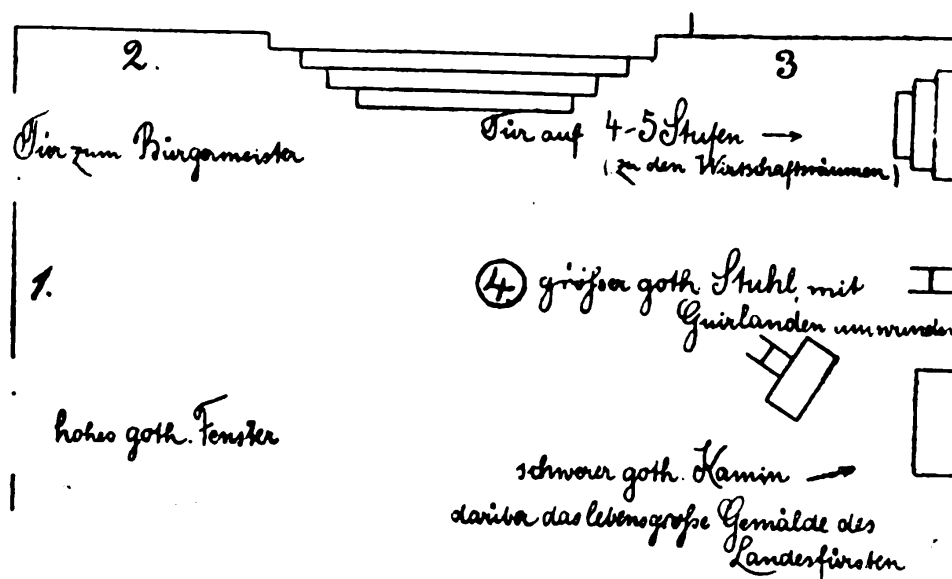 2.
3
Tür zum Bürgermeister
Tür auf 4-5 Stufen →
(zu den Wirtschaftsräumen)
1.
4 größer goth. Stuhl, mit
Guirlanden umwunden
hohes goth. Fenster
schwerer goth. Kamin →
darüber das lebensgroße Gemälde des
Landesfürsten